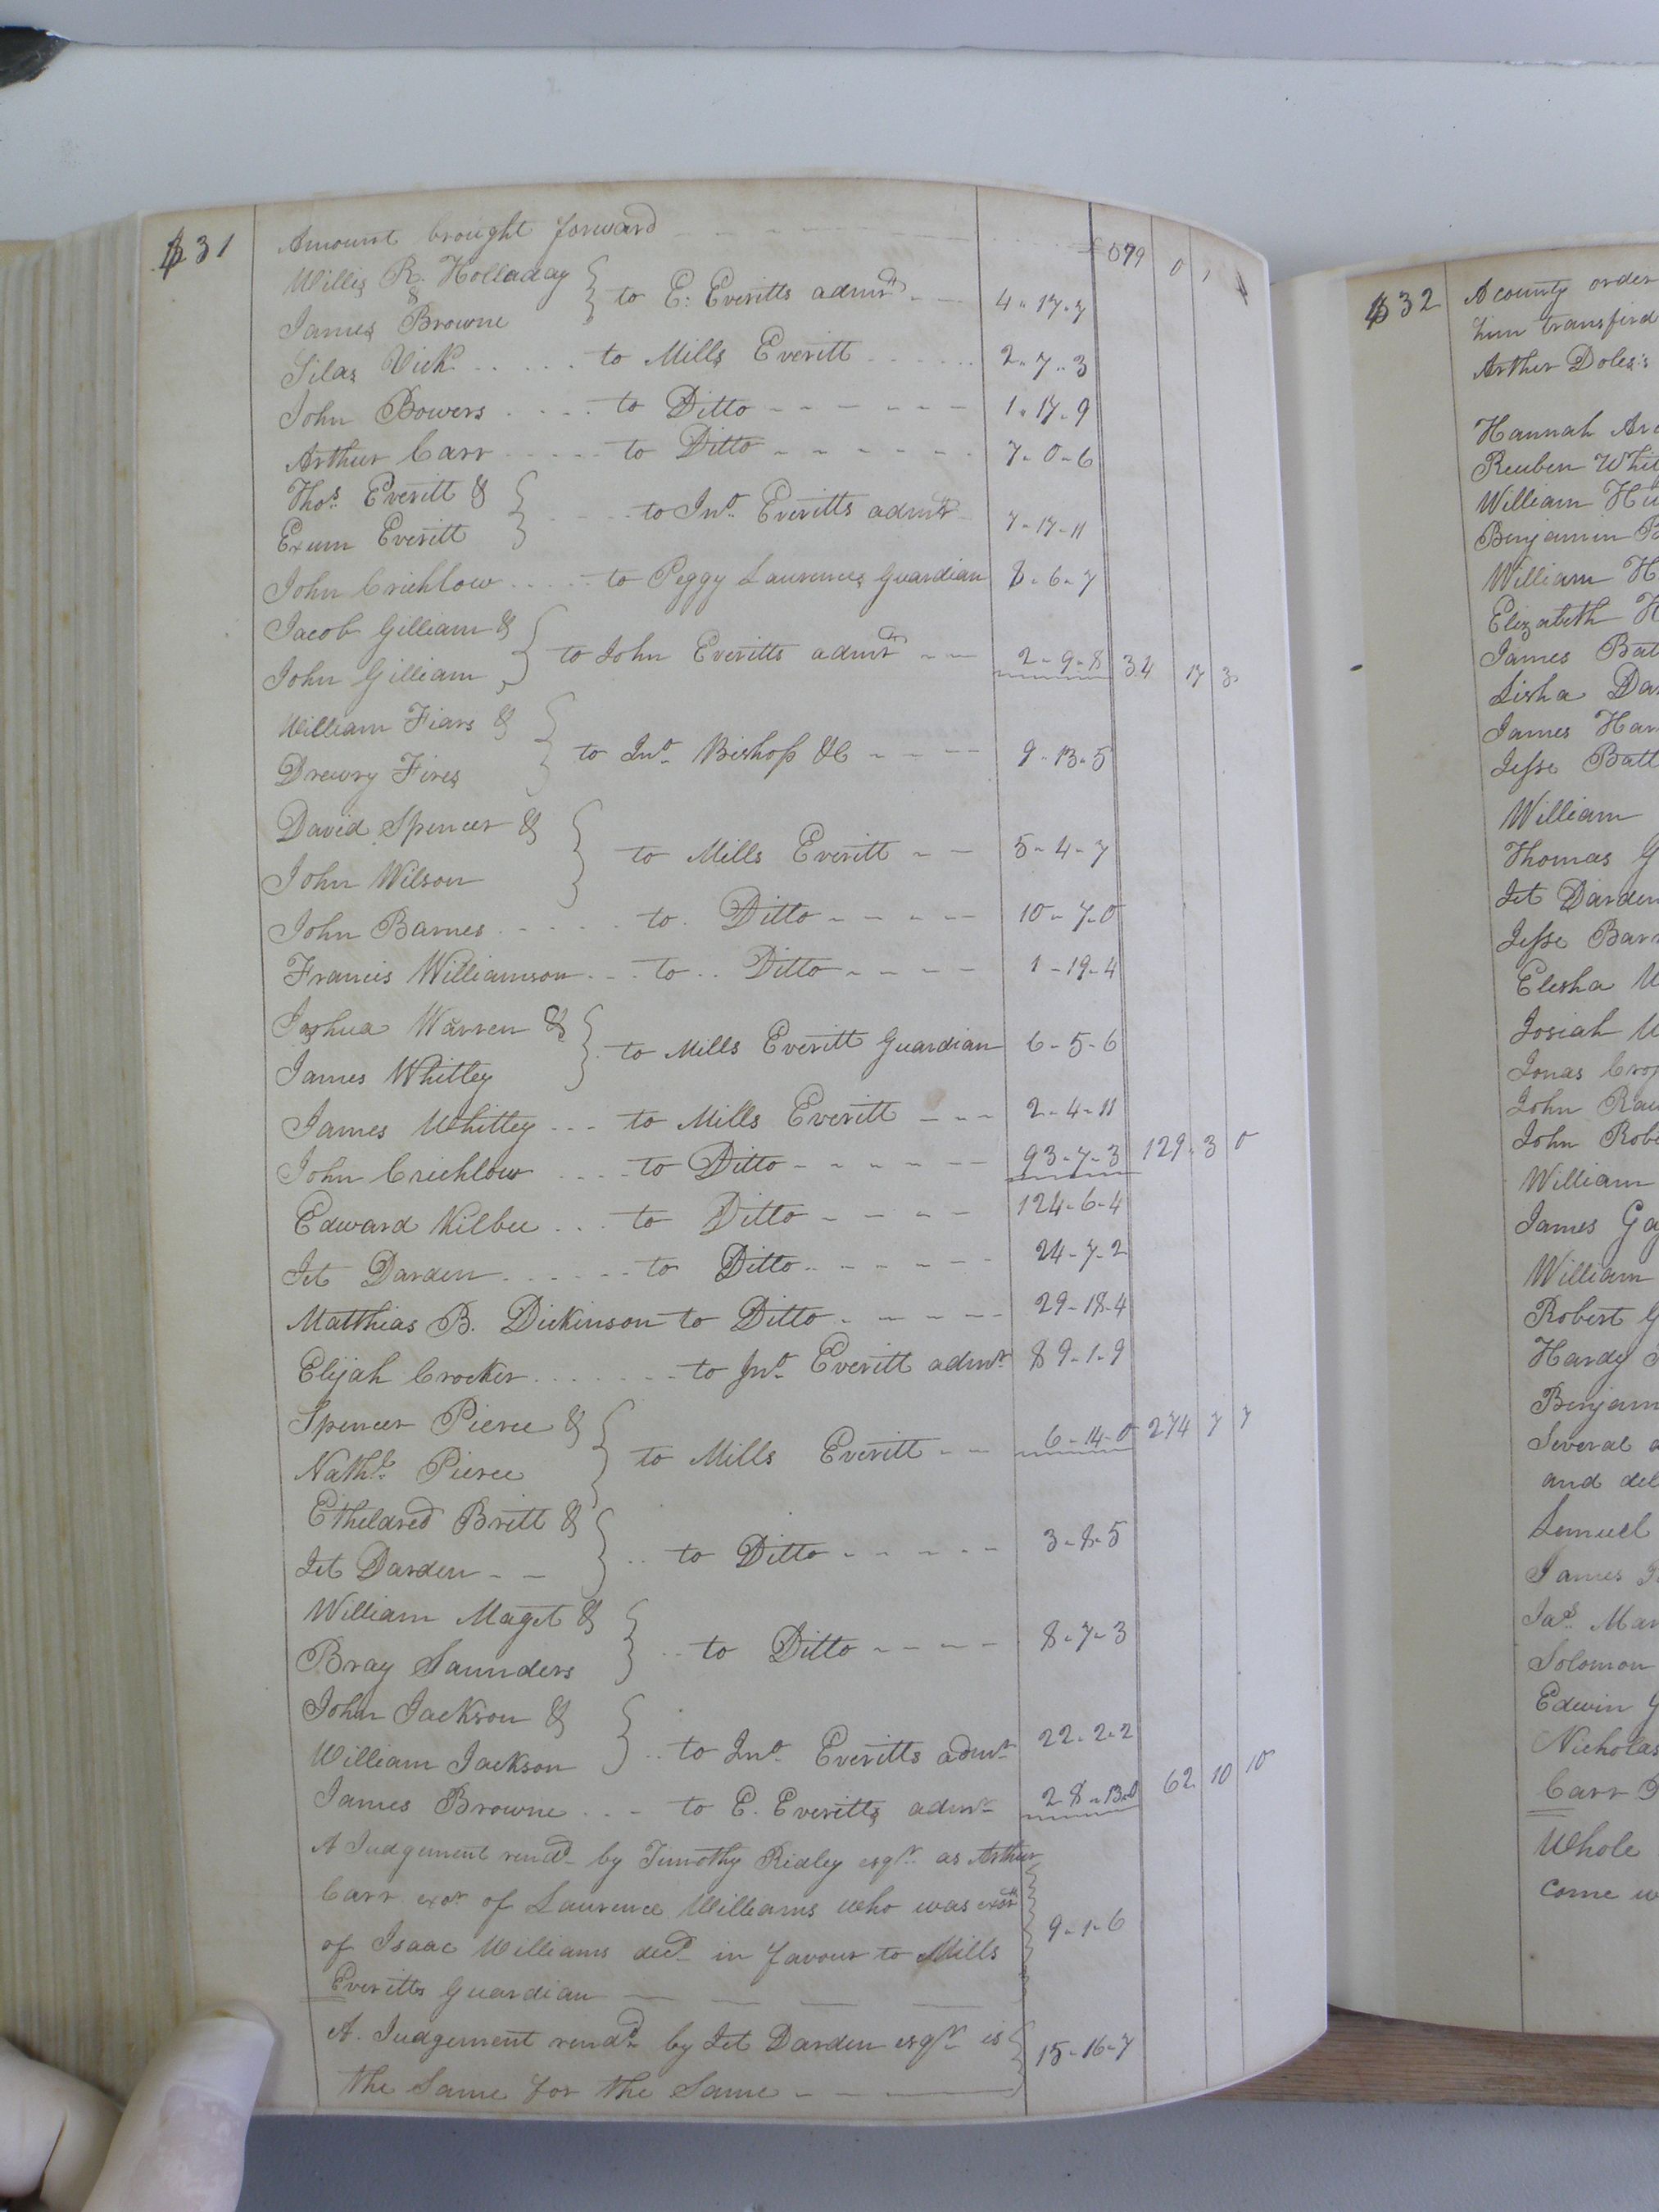 31
Amount brought forward £579 0 1
Willis R. Holladay
& to E: Everitts admr 4-17-7
James Browne
Silas Vick to Mills Everitt 2-7-3
John Bowers to Ditto 1-17-9
Arthur Carr to Ditto 7-0-6
Thos. Everitt &
to Jno. Everitts admr 7-17-11
Exum Everitt
John Crichlow to Peggy Laurences Guardian 8-6-7
Jacob Gilliam &
to John Everitts admr 2-9-8 34 17 3
John Gilliam
William Fiars &
to Jno. Bishop &C 9-13-5
Drewry Fires
David Spencer &
to Mills Everitt 5-4-7
John Wilson
John Barnes to Ditto 10-7-0
Francis Williamson to Ditto 1-19-4
Joshua Warren &
to Mills Everitt Guardian 6-5-6
James Whitley
James Whitley to Mills Everitt 2-4-11
John Crichlow to Ditto 93-7-3 129 3 0
Edward Kilbee to Ditto 124-6-4
Jet Darden to Ditto 24-7-2
Matthias B. Dickinson to Ditto 29-18-4
Elijah Crocker to Jno. Everitt admr 89-1-9
Spencer Pierce &
to Mills Everitt 6-14-0 274 7 7
Nathl. Pierce
Etheldred Britt &
to Ditto 3-8-5
Jet Darden
William Maget &
to Ditto 8-7-3
Bray Saunders
John Jackson &
to Jno. Everitts admr 22-2-2
William Jackson
James Browne to E. Everitts admr 28-13-0 62 10 10
A Judgement rendd by Timothy Ridley esqr. as Arthur
Carr exor of Laurence Williams who was exor
of Isaac Williams decd in favour to Mills 9-1-6
Everitts Guardian
A. Judgement rendd by Jet Darden esqr is
the Same for the Same 15-16-7
32
A county order
him transfird
Arthur Doles's
Hannah
Reuben
William
Benjamin
William
Elizabeth
James
Lisha
James
Jesse
William
Thomas
Jet Darden
Jesse
Elisha
Josiah
Jonas
John
John
William
James
William
Robert
Hardy
Several
and
Lemuel
James
Jas.
Solomon
Edwin
Nicholas
Carr
Whole
Come